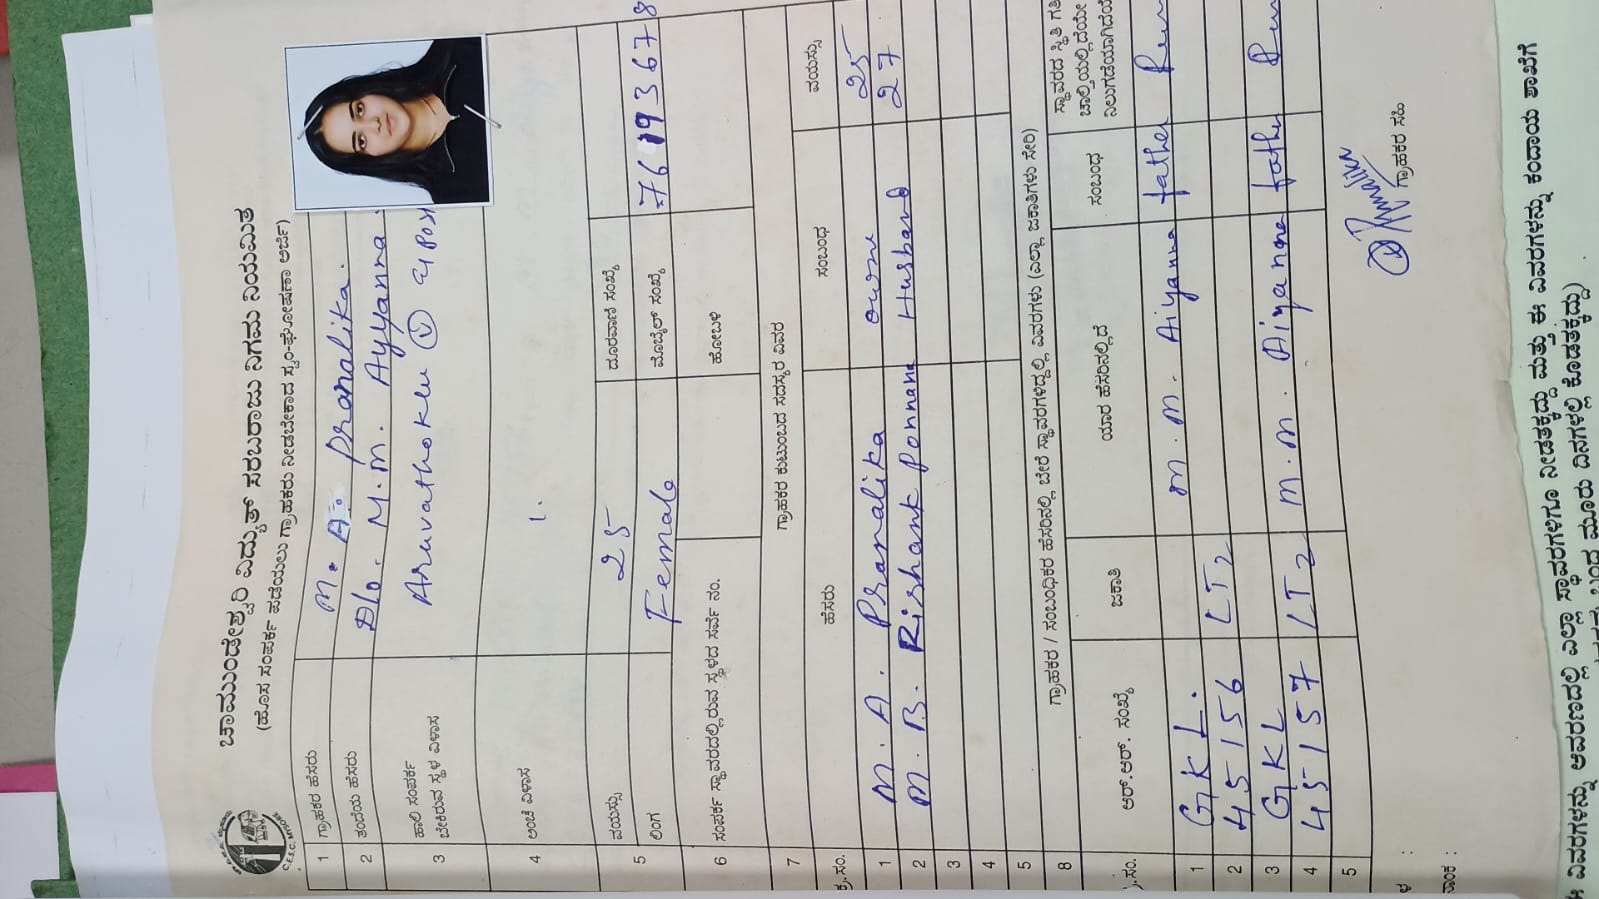 ಚಾಮುಂಡೇಶ್ವರಿ ವಿದ್ಯುತ್ ಸರಬರಾಜು ನಿಗಮ ನಿಯಮಿತ
(ಹೊಸ ಸಂಪರ್ಕ ಪಡೆಯಲು ಗ್ರಾಹಕರು ನೀಡಬೇಕಾದ ಸ್ವಂ-ಘೋಷಣಾ ಅರ್ಜಿ)
C.E.S.C. MYSORE
1 ಗ್ರಾಹಕರ ಹೆಸರು M. A. Pranalika.
2 ತಂದೆಯ ಹೆಸರು D/o. M.M. Ayyanna.
3 ಹಾಲಿ ಸಂಪರ್ಕ ಬೇಕಿರುವ ಸ್ಥಳ ವಿಳಾಸ Aruvathoklu (V) & Post
4 ಅಂಚೆ ವಿಳಾಸ
5 ವಯಸ್ಸು 25 ದೂರವಾಣಿ ಸಂಖ್ಯೆ
ಲಿಂಗ Female ಮೊಬೈಲ್ ಸಂಖ್ಯೆ 7619193678
6 ಸಂಪರ್ಕ ಸ್ಥಾವರದಲ್ಲಿರುವ ಸ್ಥಳದ ಸರ್ವೆ ನಂ. ಹೋಬಳಿ
7 ಗ್ರಾಹಕರ ಕುಟುಂಬದ ಸದಸ್ಯರ ವಿವರ
ಕ್ರ.ಸಂ. ಹೆಸರು ಸಂಬಂಧ ವಯಸ್ಸು
1 M. A. Pranalika owner 25
2 M. B. Rishank Ponnana Husband 27
3
4
5
8 ಗ್ರಾಹಕರ / ಸಂಬಂಧಿಕರ ಹೆಸರಿನಲ್ಲಿ ಬೇರೆ ಸ್ಥಾವರಗಳಿದ್ದಲ್ಲಿ ವಿವರಗಳು (ಎಲ್ಲಾ ಜಕಾತಿಗಳು ಸೇರಿ)
ಕ್ರ.ಸಂ. ಆರ್.ಆರ್. ಸಂಖ್ಯೆ ಜಕಾತಿ ಯಾರ ಹೆಸರಿನಲ್ಲಿದೆ ಸಂಬಂಧ ಸ್ಥಾವರದ ಸ್ಥಿತಿ ಗತಿ ಚಾಲ್ತಿಯಲ್ಲಿದೆಯೇ ನಿಲುಗಡೆಯಾಗಿದೆಯೇ
1 GKL. M.M. Aiyanna father
2 45156 LT2
3 GKL M.M. Aiyanna father
4 45157 LT2
5
ಗ್ರಾಹಕರ ಸಹಿ
ಈ ವಿವರಗಳನ್ನು ಆವರಣದಲ್ಲಿ ಎಲ್ಲಾ ಸ್ಥಾವರಗಳಿಗೂ ನೀಡತಕ್ಕದ್ದು ಮತ್ತು ಈ ವಿವರಗಳನ್ನು ಕಂದಾಯ ಶಾಖೆಗೆ
ಬಂದ ಮೂರು ದಿನಗಳಲ್ಲಿ ಕೊಡತಕ್ಕದ್ದು)